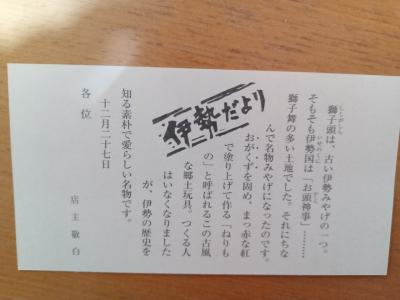 伊勢だより
獅子頭は、古い伊勢みやげの一つ。
そもそも伊勢国は「お頭神事」………
獅子舞の多い土地でした。それにちな
んで名物みやげになったのです。
おがくずを固め、まっ赤な紅
で塗り上げて作る「ねりも
の」と呼ばれるこの古風
な郷土玩具。つくる人
はいなくなりました
が、伊勢の歴史を
知る素朴で愛らしい名物です。
十二月二十七日
店主敬白
各位